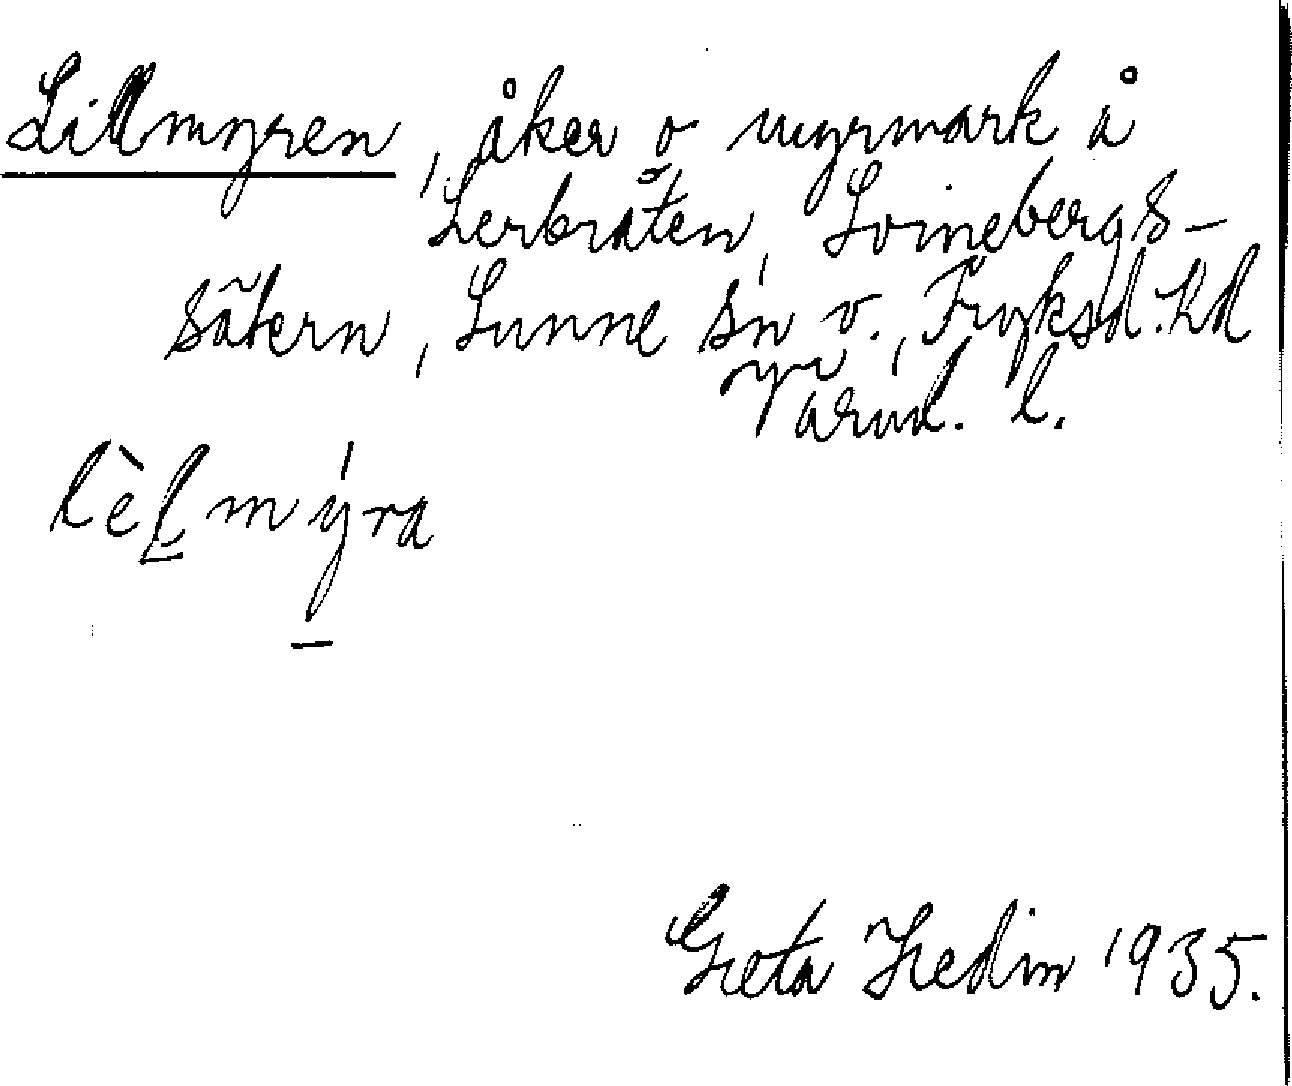 Lillmyren, åker o myrmark å
Lerbråten, Svinebergs-
sätern, Sunne sn v., Fryksd. hd
Värml. l.
lèl mýra
Greta Hedin 1935.